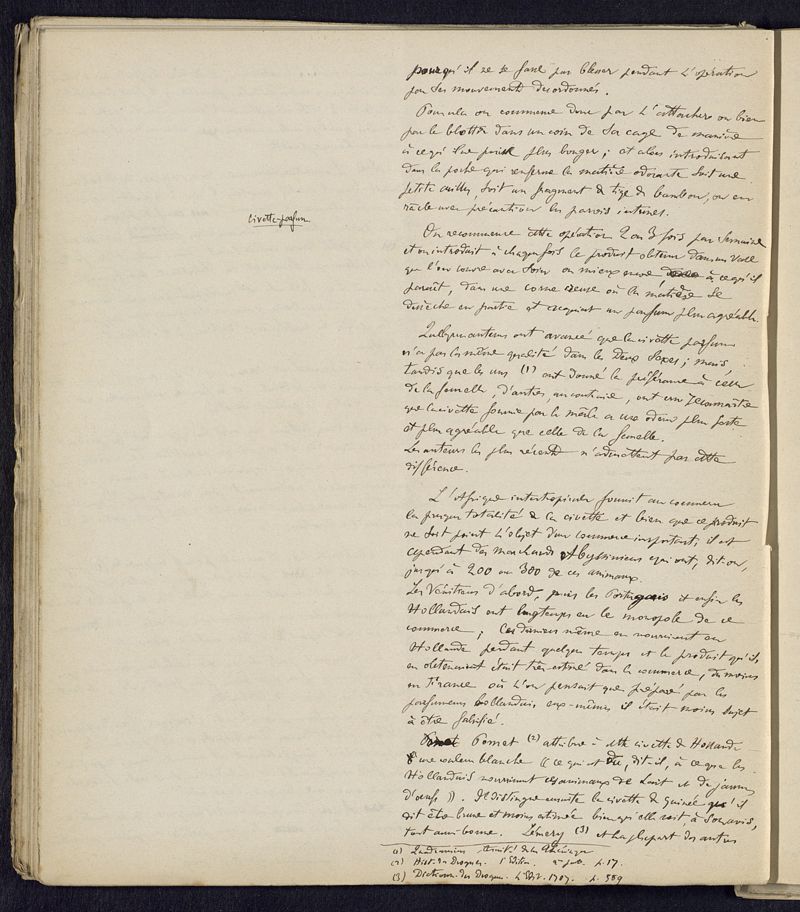 pourqu'il ne se fasse pas blesser pendant l'opération
par ses mouvements désordonnés.
Pour cela on commence donc par l'attacher ou bien
par le blottir dans un coin de sa cage de manière
à ce qu'il ne puisse plus bouger; et alors introduisant
dans la poche qui renferme la matière odorante soit une
petite cuiller, soit un fragment de tige de bambou, on en
racle avec précaution les parois internes.
Civette-parfum
On recommence cette opération 2 ou 3 fois par semaine
et on introduit à chaque fois le produit obtenu dans un vase
que l'on couvre avec soin ou mieux encore à ce qu'il
paraît, dans une corne creuse où la matière se
dessèche en partie et acquiert un parfum plus agréable.
Quelques auteurs ont avancé que la civette parfum
n'a pas la même qualité dans les deux sexes; mais
tandis que les uns (1) ont donné la préférence à celle
de la femelle, d'autres, au contraire, ont cru reconnaître
que la civette fournie par le mâle a une odeur plus forte
et plus agréable que celle de la femelle.
Les auteurs les plus récents n'admettent pas cette
différence.
L'Afrique intertropicale fournit au commerce
la presque totalité de la civette et bien que ce produit
ne soit point l'objet d'un commerce important, il est
cependant des marchands Abyssiniens qui ont, dit-on,
jusqu'à 200 ou 300 de ces animaux.
Les Vénitiens d'abord, puis les Portugais et enfin les
Hollandais ont longtemps eu le monopole de ce
commerce; ces derniers même en nourrirent en
Hollande pendant quelque temps et le produit qu'ils
en obtenaient était très estimé dans le commerce, du moins
en France où l'on pensait que préparé par les
parfumeurs hollandais eux-mêmes il était moins sujet
à être falsifié.
Pomet (2) attribue à cette civette de Hollande
une couleur blanche (( ce qui est dû, dit-il, à ce que les
Hollandais nourrissent ces animaux de lait et de jaunes
d'œufs )). Il distingue ensuite la civette de Guinée qu'il
dit être brune et moins estimée bien qu'elle soit à son avis,
tout aussi bonne. Lémery (3) et la plupart des autres
(1)
(2) Hist. des Drogues. 1e Edition. 2e part. p. 17.
(3) Dictionn. des Drogues. p. 589